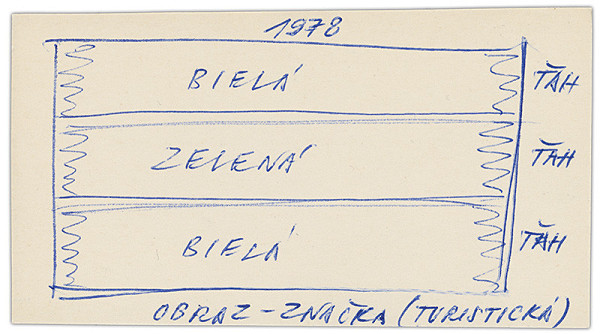 1978
BIELÁ ŤAH
ZELENÁ ŤAH
BIELÁ ŤAH
OBRAZ-ZNAČKA (TURISTICKÁ)